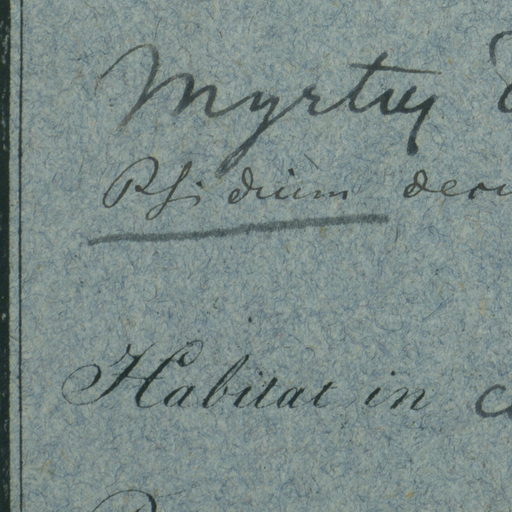 Myrtus
Psidium
Habitat in